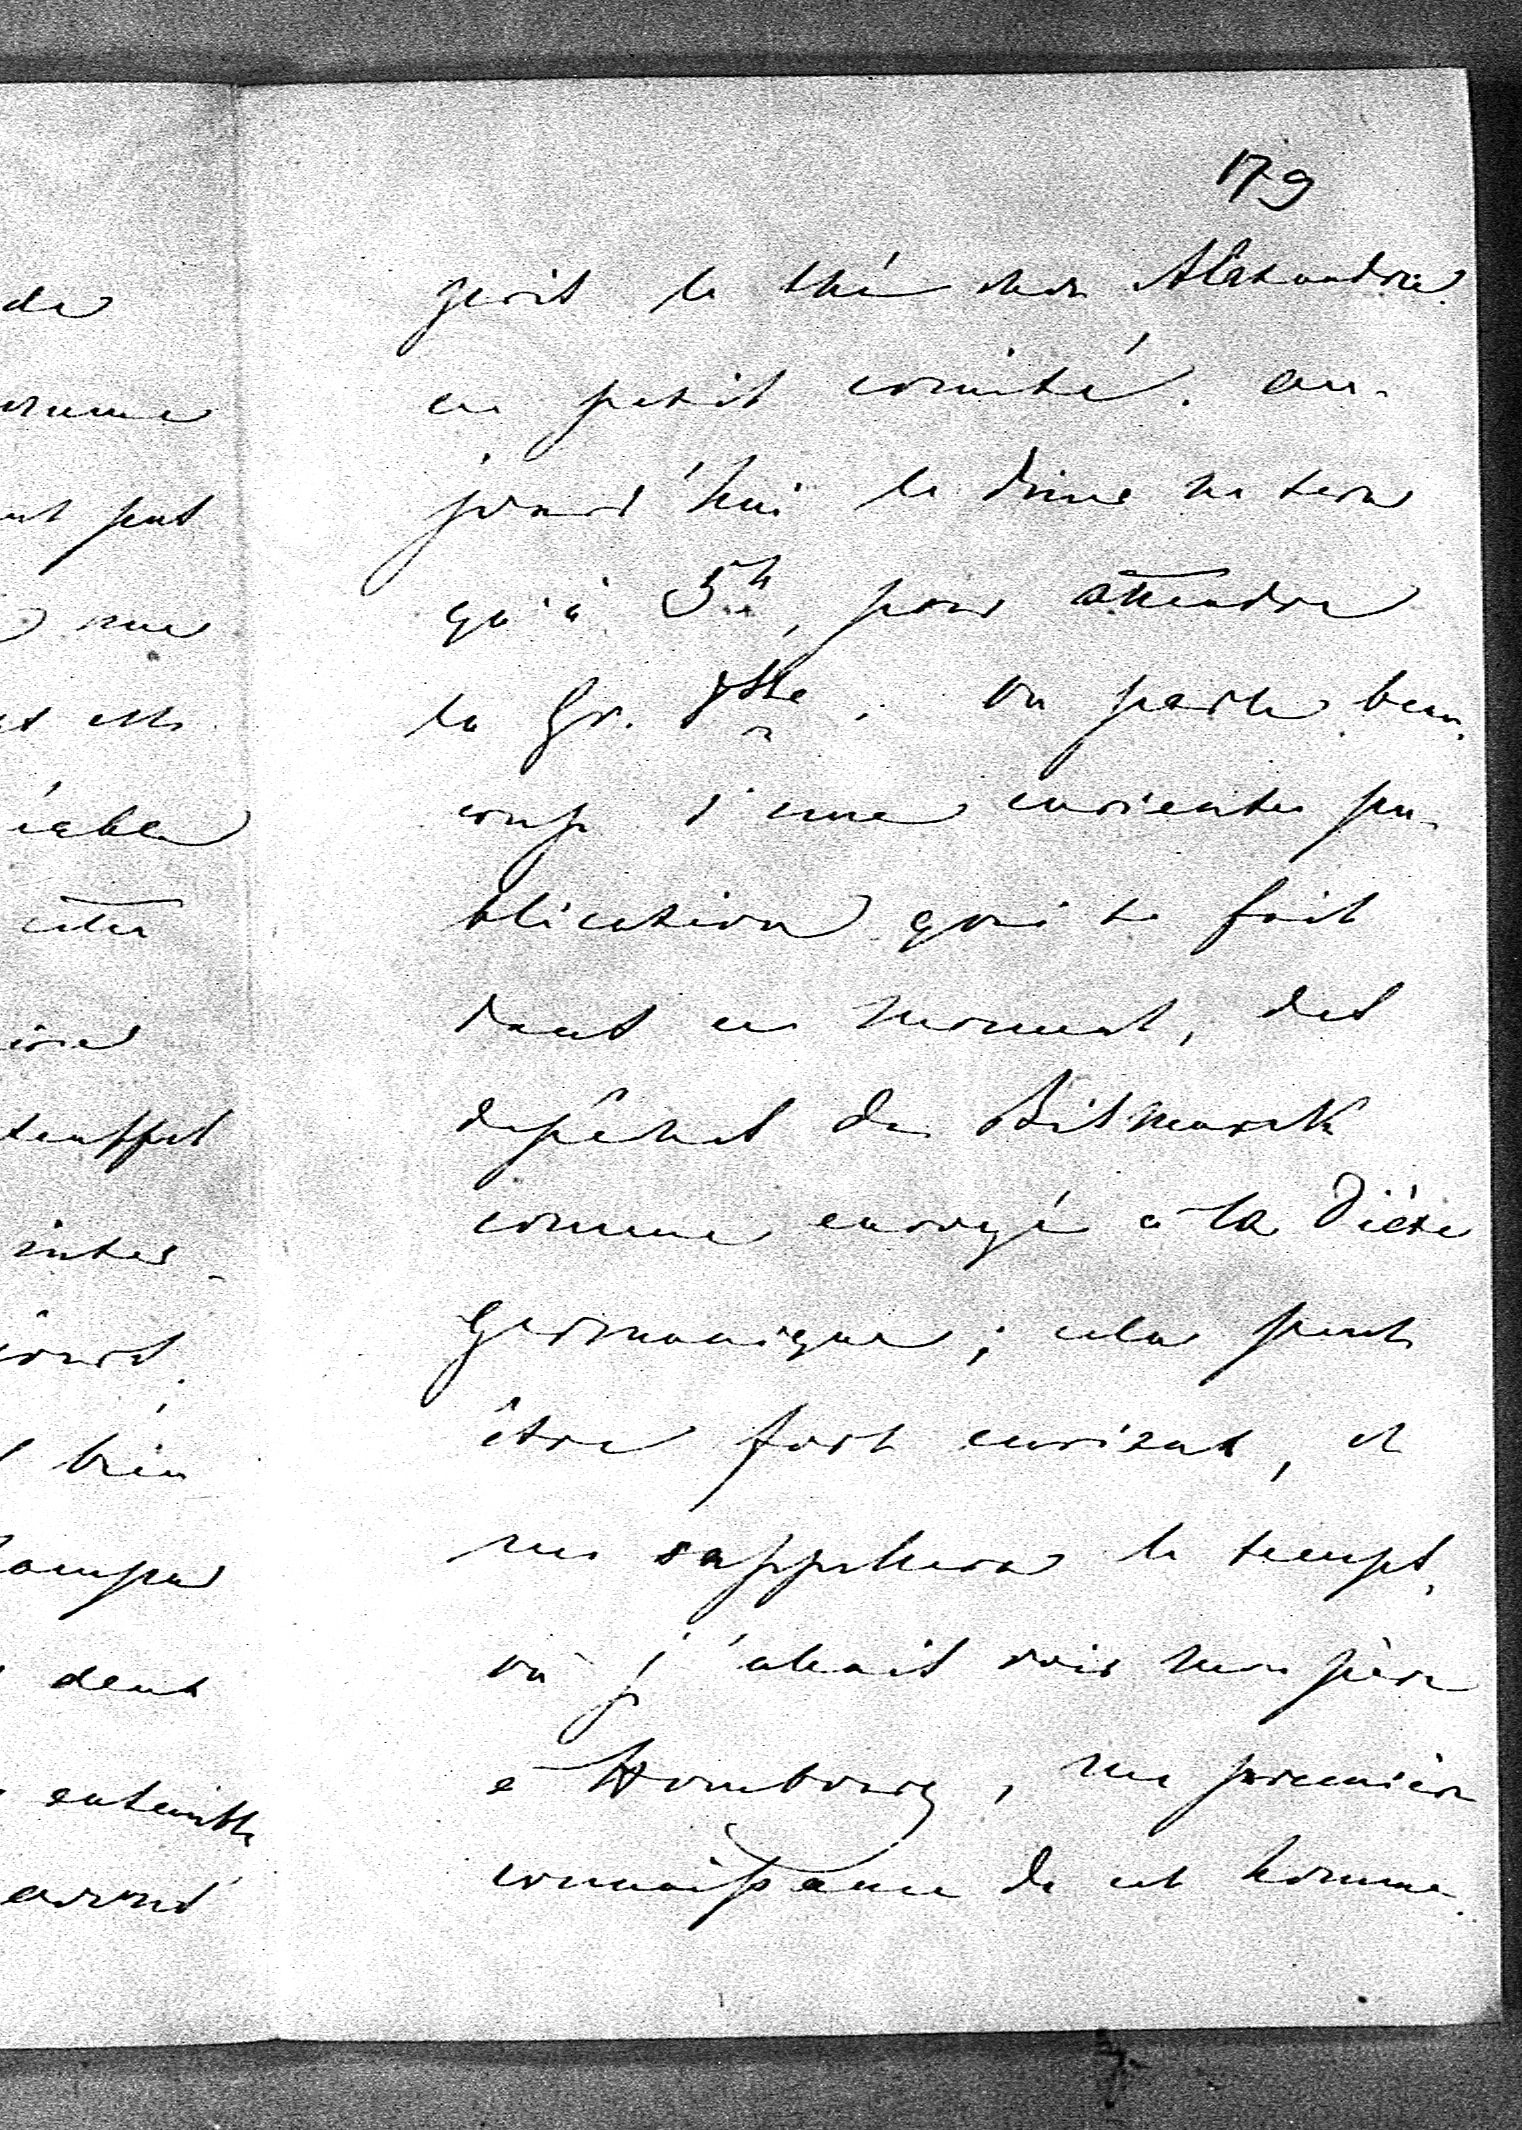 179
prit le thé chez Alexandrie
en petit comité. au-
jourd'hui le dîner ne sera
qu'à 5 h, pour attendre
la Gr. Dsse. On parle beau-
coup d'une curieuse pu-
blication qui se fait
dans ce moment, des
depêches de Bismarck
comme envoyé à la Diète
Germanique; cela peut
être fort curieux, et
me rappellera le temps,
où j'allais voir mon père
à Hombourg, ma première
connaissance de cet homme.
de
comme
pas
iable
cette
teuffel
inter-
jours,
bien
deux
ensemble
avons